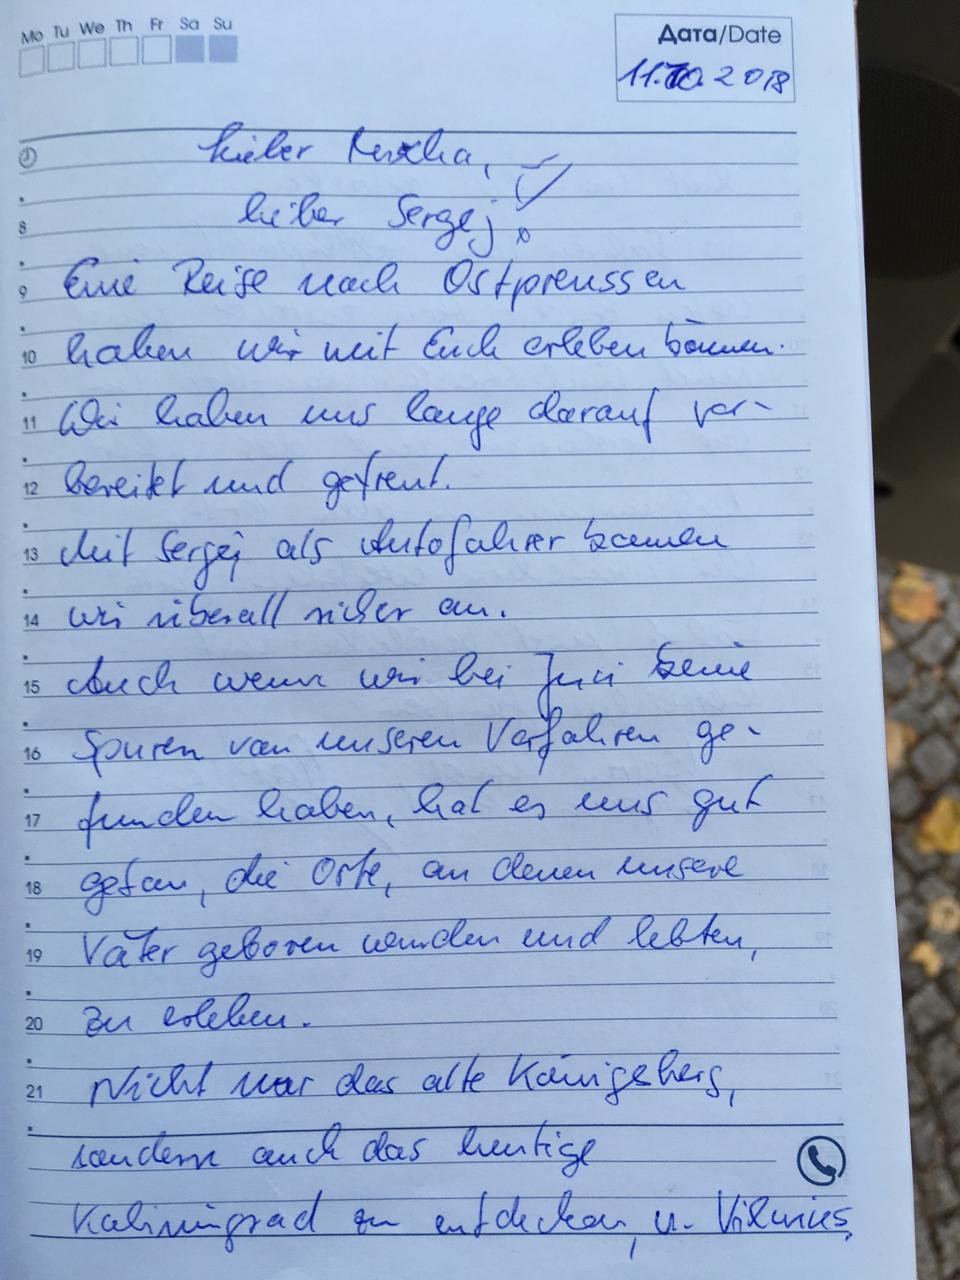 Mo Tu We Th Fr Sa Su
Дата/Date
11.10.2018
Lieber
lieber Sergej!
8
9 Eine Reise nach Ostpreussen
10 haben wir mit Euch erleben können.
11 Wir haben uns lange darauf vor-
12 bereitet und gefreut.
13 Mit Sergej als Autofahrer kamen
14 wir überall sicher an.
15 Auch wenn wir bei Juri keine
16 Spuren von unseren Vorfahren ge-
17 funden haben, hat es uns gut
18 getan, die Orte, an denen unsere
19 Väter geboren wurden und lebten,
20 zu erleben.
21 Nicht nur das alte Königsberg,
sondern auch das heutige
Kaliningrad zu entdecken, u. Vilnius,